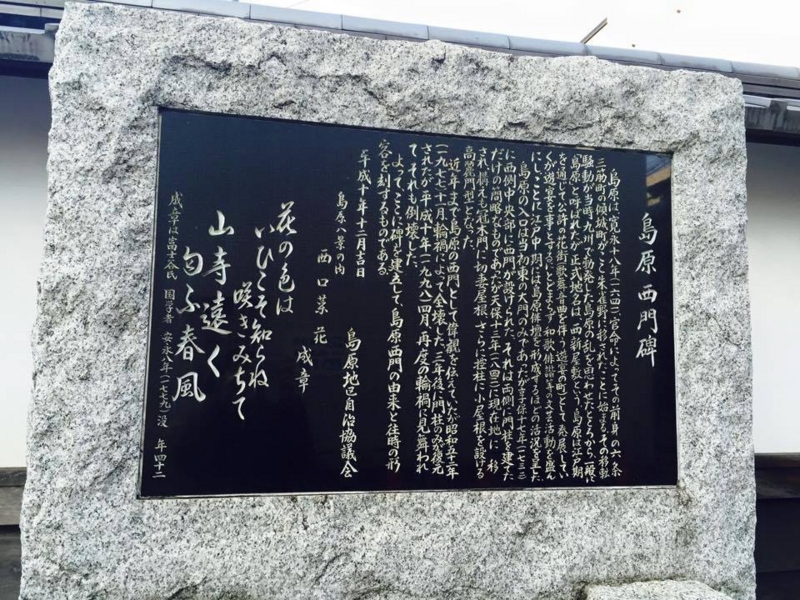 島原西門碑
島原は、寛永十八年(一六四一)官命によってその前身の六条
三筋町の傾城町から、ここ朱雀野に移されたことに始まる。その移転
騒動が当時、九州で勃った島原の乱を思わせたところから、一般に
島原と呼ばれたが、正式地名は「西新屋敷」という。島原は江戸期
を通じて公許の花街(歌舞音曲を伴う遊宴の町)として発展してい
くが、遊宴を事とするにとどまらず、和歌俳諧等の文芸活動も盛ん
にして、ことに江戸中期には島原俳壇を形成するほどの活況を呈した。
島原の入口は、当初東の大門のみであったが、享保十七年(一七三二)
に西側中央部に西門が設けられた。それは両側に門柱を建てた
だけの簡略なものであったが、天保十三年(一八四二)に現在地に移
され、構えも冠木門に切妻屋根、さらに控柱に小屋根を設ける
高麗門型となった。
近年まで島原の西門として偉観を伝えていたが、昭和五十二年
(一九七七)十一月に輪禍によって全壊した。三年後に門柱のみ復元
されたが、平成十年(一九九八)四月、再度の輪禍に見舞われ
て、それも倒壊した。
よって、ここに碑を建立して、島原西門の由来と往時の形
容を刻するものである。
平成十年十一月吉日
島原地区自治協議会
島原八景の内
西口菜花 成章
花の色は
いひこそ知らね
咲きみちて
山寺遠く
匂ふ春風
成章は富士谷氏 国学者 安永八年(一七七九)没 年四十二